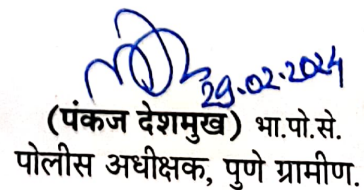 29.02.2024
(पंकज देशमुख) भा.पो.से.
पोलीस अधीक्षक, पुणे ग्रामीण.